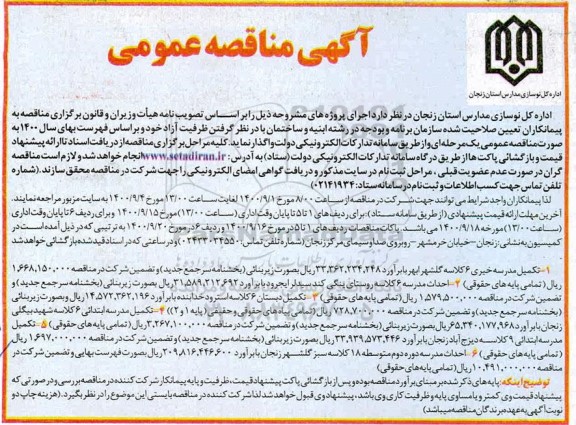 آگهی مناقصه عمومی
اداره کل نوسازی مدارس استان زنجان
اداره کل نوسازی مدارس استان زنجان در نظر دارد اجرای پروژه های مشروحه ذیل را بر اساس تصویب نامه هیأت وزیران و قانون برگزاری مناقصه به
پیمانکاران تعیین صلاحیت شده سازمان برنامه و بودجه در رشته ابنیه و ساختمان با در نظر گرفتن ظرفیت آزاد خود و بر اساس فهرست بهای سال ۱۴۰۰ به
صورت مناقصه عمومی یک مرحله ای و از طریق سامانه تدارکات الکترونیکی دولت واگذار نماید. کلیه مراحل برگزاری مناقصه از دریافت اسناد تا ارائه پیشنهاد
قیمت و بازگشائی پاکت ها از طریق درگاه سامانه تدارکات الکترونیکی دولت (ستاد) به آدرس: www.setadiran.ir انجام خواهد شد و لازم است مناقصه
گران در صورت عدم عضویت قبلی ، مراحل ثبت نام در سایت مذکور و دریافت گواهی امضای الکترونیکی را جهت شرکت در مناقصه محقق سازند. (شماره
تلفن تماس جهت کسب اطلاعات و ثبت نام در سامانه ستاد: ۰۲۱۴۱۹۳۴)
لذا پیمانکاران واجد شرایط می توانند جهت شرکت در مناقصه از ساعت ۸:۰۰ مورخ ۱۴۰۰/۹/۱ لغایت ساعت ۱۳:۰۰ مورخ ۱۴۰۰/۹/۴ به سایت مزبور مراجعه نمایند.
آخرین مهلت ارائه قیمت پیشنهادی (از طریق سامانه ستاد) برای ردیف های ۱ تا ۵ تا پایان وقت اداری (ساعت ۱۳:۰۰) مورخ ۱۴۰۰/۹/۱۵ و برای ردیف ۶ تا پایان وقت اداری
(ساعت ۱۳:۰۰) مورخه ۱۴۰۰/۹/۱۸ می باشد. پاکات مناقصات ردیف های ۱ تا ۵ در مورخ ۱۴۰۰/۹/۱۶ و ردیف ۶ در مورخ ۱۴۰۰/۹/۲۰ به ترتیبی که در ذیل آمده است در
کمیسیون به نشانی: زنجان – خیابان خرمشهر – روبروی صدا و سیمای مرکز زنجان (شماره تلفن تماس ۰۲۴۳۳۰۳۴۵۵۰) و در ساعتی که در اسناد قید شده بازگشائی خواهد شد
۱- تکمیل مدرسه خیری ۶ کلاسه گلشهر ابهر با برآورد ۳۳،۳۶۲،۲۳۴،۲۴۸ ریال بصورت زیربنائی (بخشنامه سرجمع جدید) و تضمین شرکت در مناقصه ۱،۶۶۸،۱۵۰،۰۰۰
ریال (تمامی پایه های حقوقی) ۲- احداث مدرسه ۶ کلاسه روستای ینگی کند سیدلر ایجرود با برآورد ۳۱،۵۸۹،۲۱۲،۶۹۲ ریال بصورت زیربنائی (بخشنامه سرجمع جدید) و
تضمین شرکت در مناقصه ۱،۵۷۹،۵۰۰،۰۰۰ ریال (تمامی پایه های حقوقی) ۳- تکمیل دبستان ۶ کلاسه استرود خدابنده با برآورد ۱۴،۵۷۲،۳۶۲،۱۹۶ ریال و بصورت زیربنائی
(بخشنامه سرجمع جدید) و تضمین شرکت در مناقصه ۷۲۸،۷۰۰،۰۰۰ ریال (تمامی پایه های حقوقی و حقیقی پایه ۱ و ۲) ۴- تکمیل مدرسه ابتدائی ۶ کلاسه شهید بیگلی
زنجان با برآورد ۶۵،۳۴۰،۱۷۷،۹۶۸ ریال بصورت زیربنائی (بخشنامه سرجمع جدید) و تضمین شرکت در مناقصه ۳،۲۶۷،۱۰۰،۰۰۰ ریال (تمامی پایه های حقوقی) ۵- تکمیل
مدرسه ابتدائی ۹ کلاسه دیزج آباد زنجان با برآورد ۳۳،۹۳۹،۵۷۳،۴۴۶ ریال بصورت زیربنائی (بخشنامه سرجمع جدید) و تضمین شرکت در مناقصه ۱،۶۹۷،۰۰۰،۰۰۰ ریال
(تمامی پایه های حقوقی) ۶- احداث مدرسه دوره دوم متوسطه ۱۸ کلاسه سبز گلشهر زنجان با برآورد ۲۰۹،۸۱۶،۴۴۶،۶۰۰ ریال بصورت فهرست بهایی و تضمین شرکت در
مناقصه ۱۰،۴۹۱،۰۰۰،۰۰۰ ریال (تمامی پایه های حقوقی)
توضیح اینکه: پایه های ذکر شده بر مبنای برآورد مناقصه بوده و پس از بازگشائی پاکت پیشنهاد قیمت، ظرفیت و پایه پیمانکار شرکت کننده در مناقصه بررسی و در صورتی که
پیشنهاد قیمت وی کمتر و یا مساوی پایه و ظرفیت کاری وی باشد ، پیشنهاد وی قبول خواهد شد لذا شرکت کننده در مناقصه بایستی این موضوع را در نظر بگیرد. (هزینه چاپ دو
نوبت آگهی به عهده برندگان مناقصه میباشد)